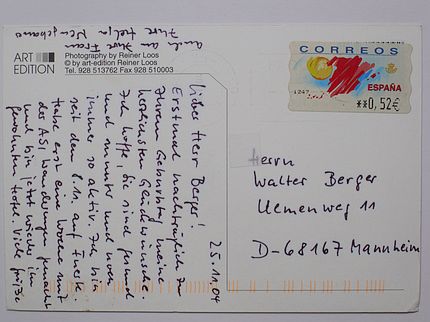 ART
EDITION
Photography by Reiner Loos
© by art-edition Reiner Loos
Tel. 928 513762 Fax 928 510003
CORREOS
ESPAÑA
**0,52€
25.11.04
Lieber Herr Berger!
Erstmal nachträglich zu
Ihrem Geburtstag meine
herzlichsten Glückwünsche.
Ich hoffe, Sie sind gesund
und munter und noch
immer so aktiv. Ich bin
seit dem 8.11. auf Fuerte.
Habe erst eine Woche mit
der ASI Wanderungen gemacht
und bin jetzt wieder im
gewohnten Hotel. Viele Grüße
auch an Ihre Frau
Ihre Helga
Herrn
Walter Berger
Ulmenweg 11
D-68167 Mannheim